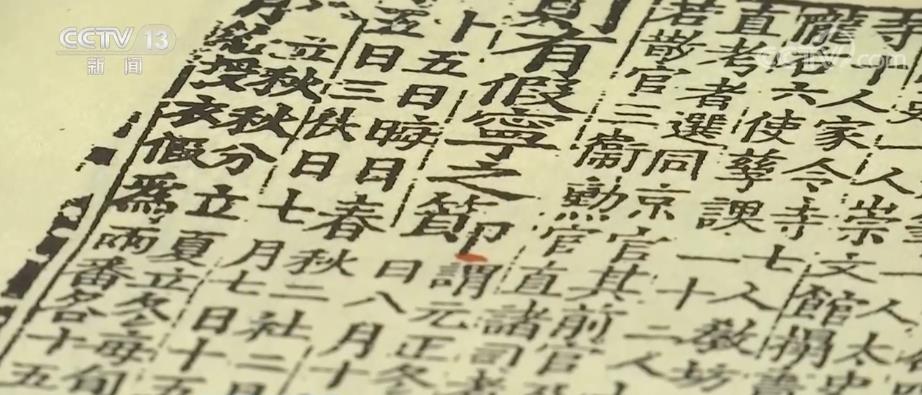 人太史
人人崇文館搨書
寺人家令寺七人教坊
六使孳課一十二人
直考者選同京官其前官
若散官三衞勳官直諸司者
則有假寧之節
謂元正冬
日八月十
十五日晦日春秋二社二
五日三伏日七月七日十五
立秋秋分立夏立冬每旬
月給授衣假爲兩番各十五
CCTV 13
新闻